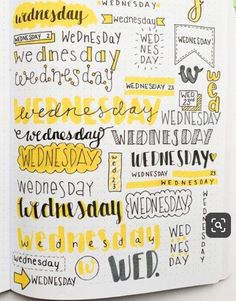 wednesday
WEDNESDAY
wednesday
WED
NES
DAY
WEDNESDAY 2
WEDNESDAY
wednesday
WEDNESDAY
wednesday
w
wed
wednesday
WEDNESDAY 23
wednesday
WED
22nd
wednesday
WEDNESDAY
WEDNESDAY
wed
23
WEDNESDAY
WEDNESDAY 23
WEDNESDAY
wednesday
wednesday
WEDNESDAY
WEDNESDAY
wednesday
WED
NES
DAY
wednesday
w
WED.
WEDNESDAY
WEDNESDAY